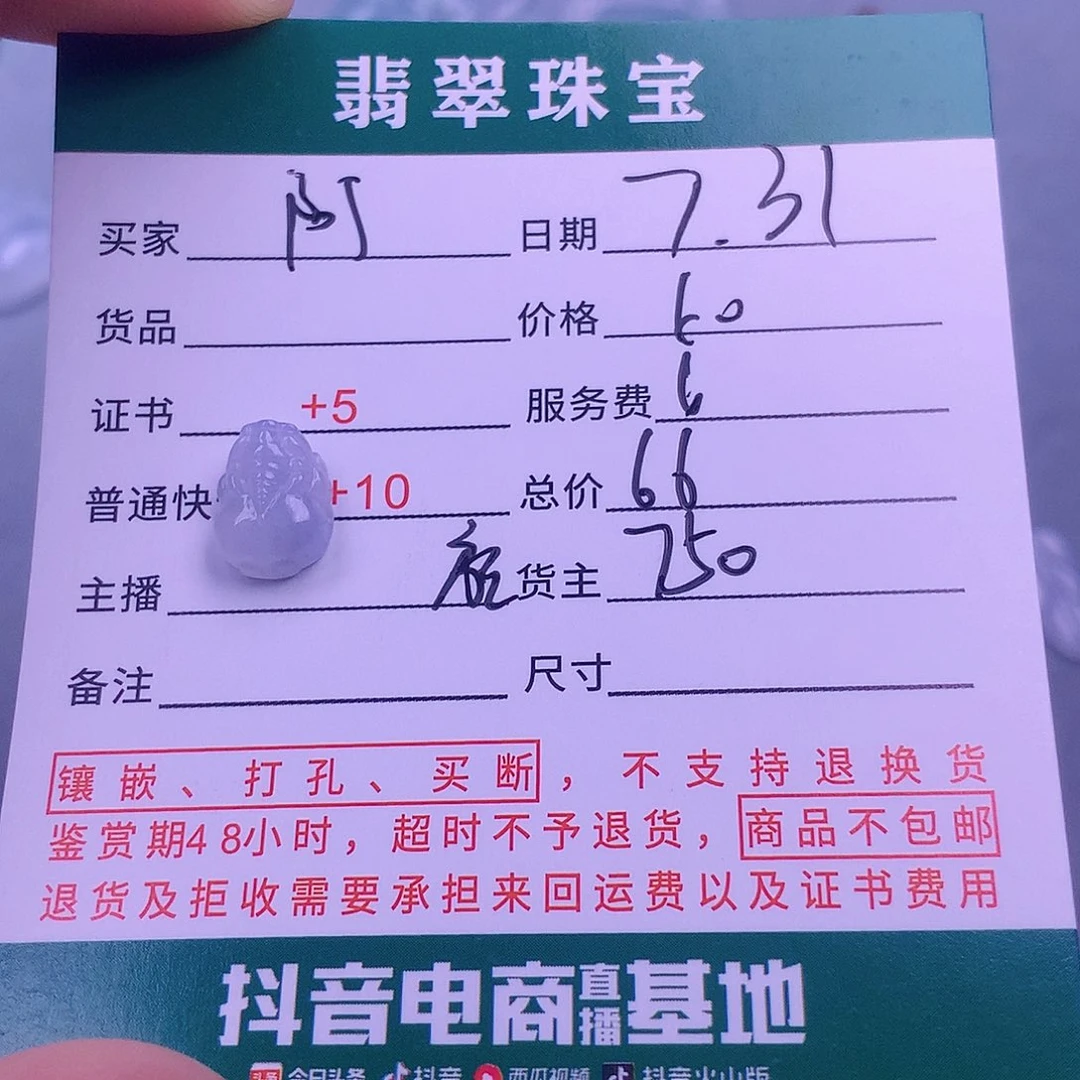 翡翠珠宝
买家 阿 日期 7.31
货品 价格 60
证书 +5 服务费 6
普通快 +10 总价 66
主播 货主 250
备注 尺寸
镶嵌、打孔、买断，不支持退换货
鉴赏期48小时，超时不予退货，商品不包邮
退货及拒收需要承担来回运费以及证书费用
抖音电商直播基地
头条 今日头条 抖音 西瓜视频 抖音火山版